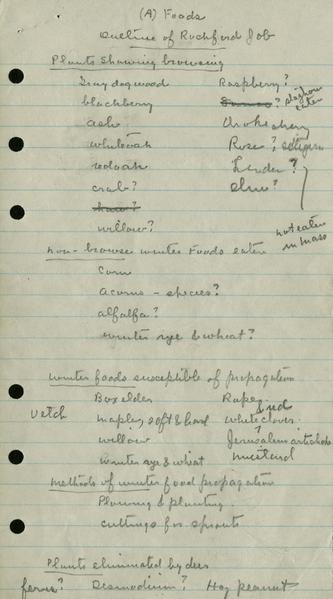 (A) Foods
Outline of Rockford Job
Plants showing browsing
Gray dogwood Raspberry?
blackberry Sumac? staghorn eaten
ash Chokecherry
white oak Rose? setigera
red oak Linden?
crab? elm?
haw?
willow? not eaten in mass
Non-browse winter Foods eaten
Corn
Acorns - species?
alfalfa?
winter rye & wheat?
winter foods susceptible of propagation
Box elder Rape
vetch maples, soft & hard white & red clover
willow Jerusalem artichoke
winter rye & wheat mustard
Methods of winter food propagation
Plowing & planting
cuttings for sprouts
Plants eliminated by deer
ferns? Desmodium? Hog peanut